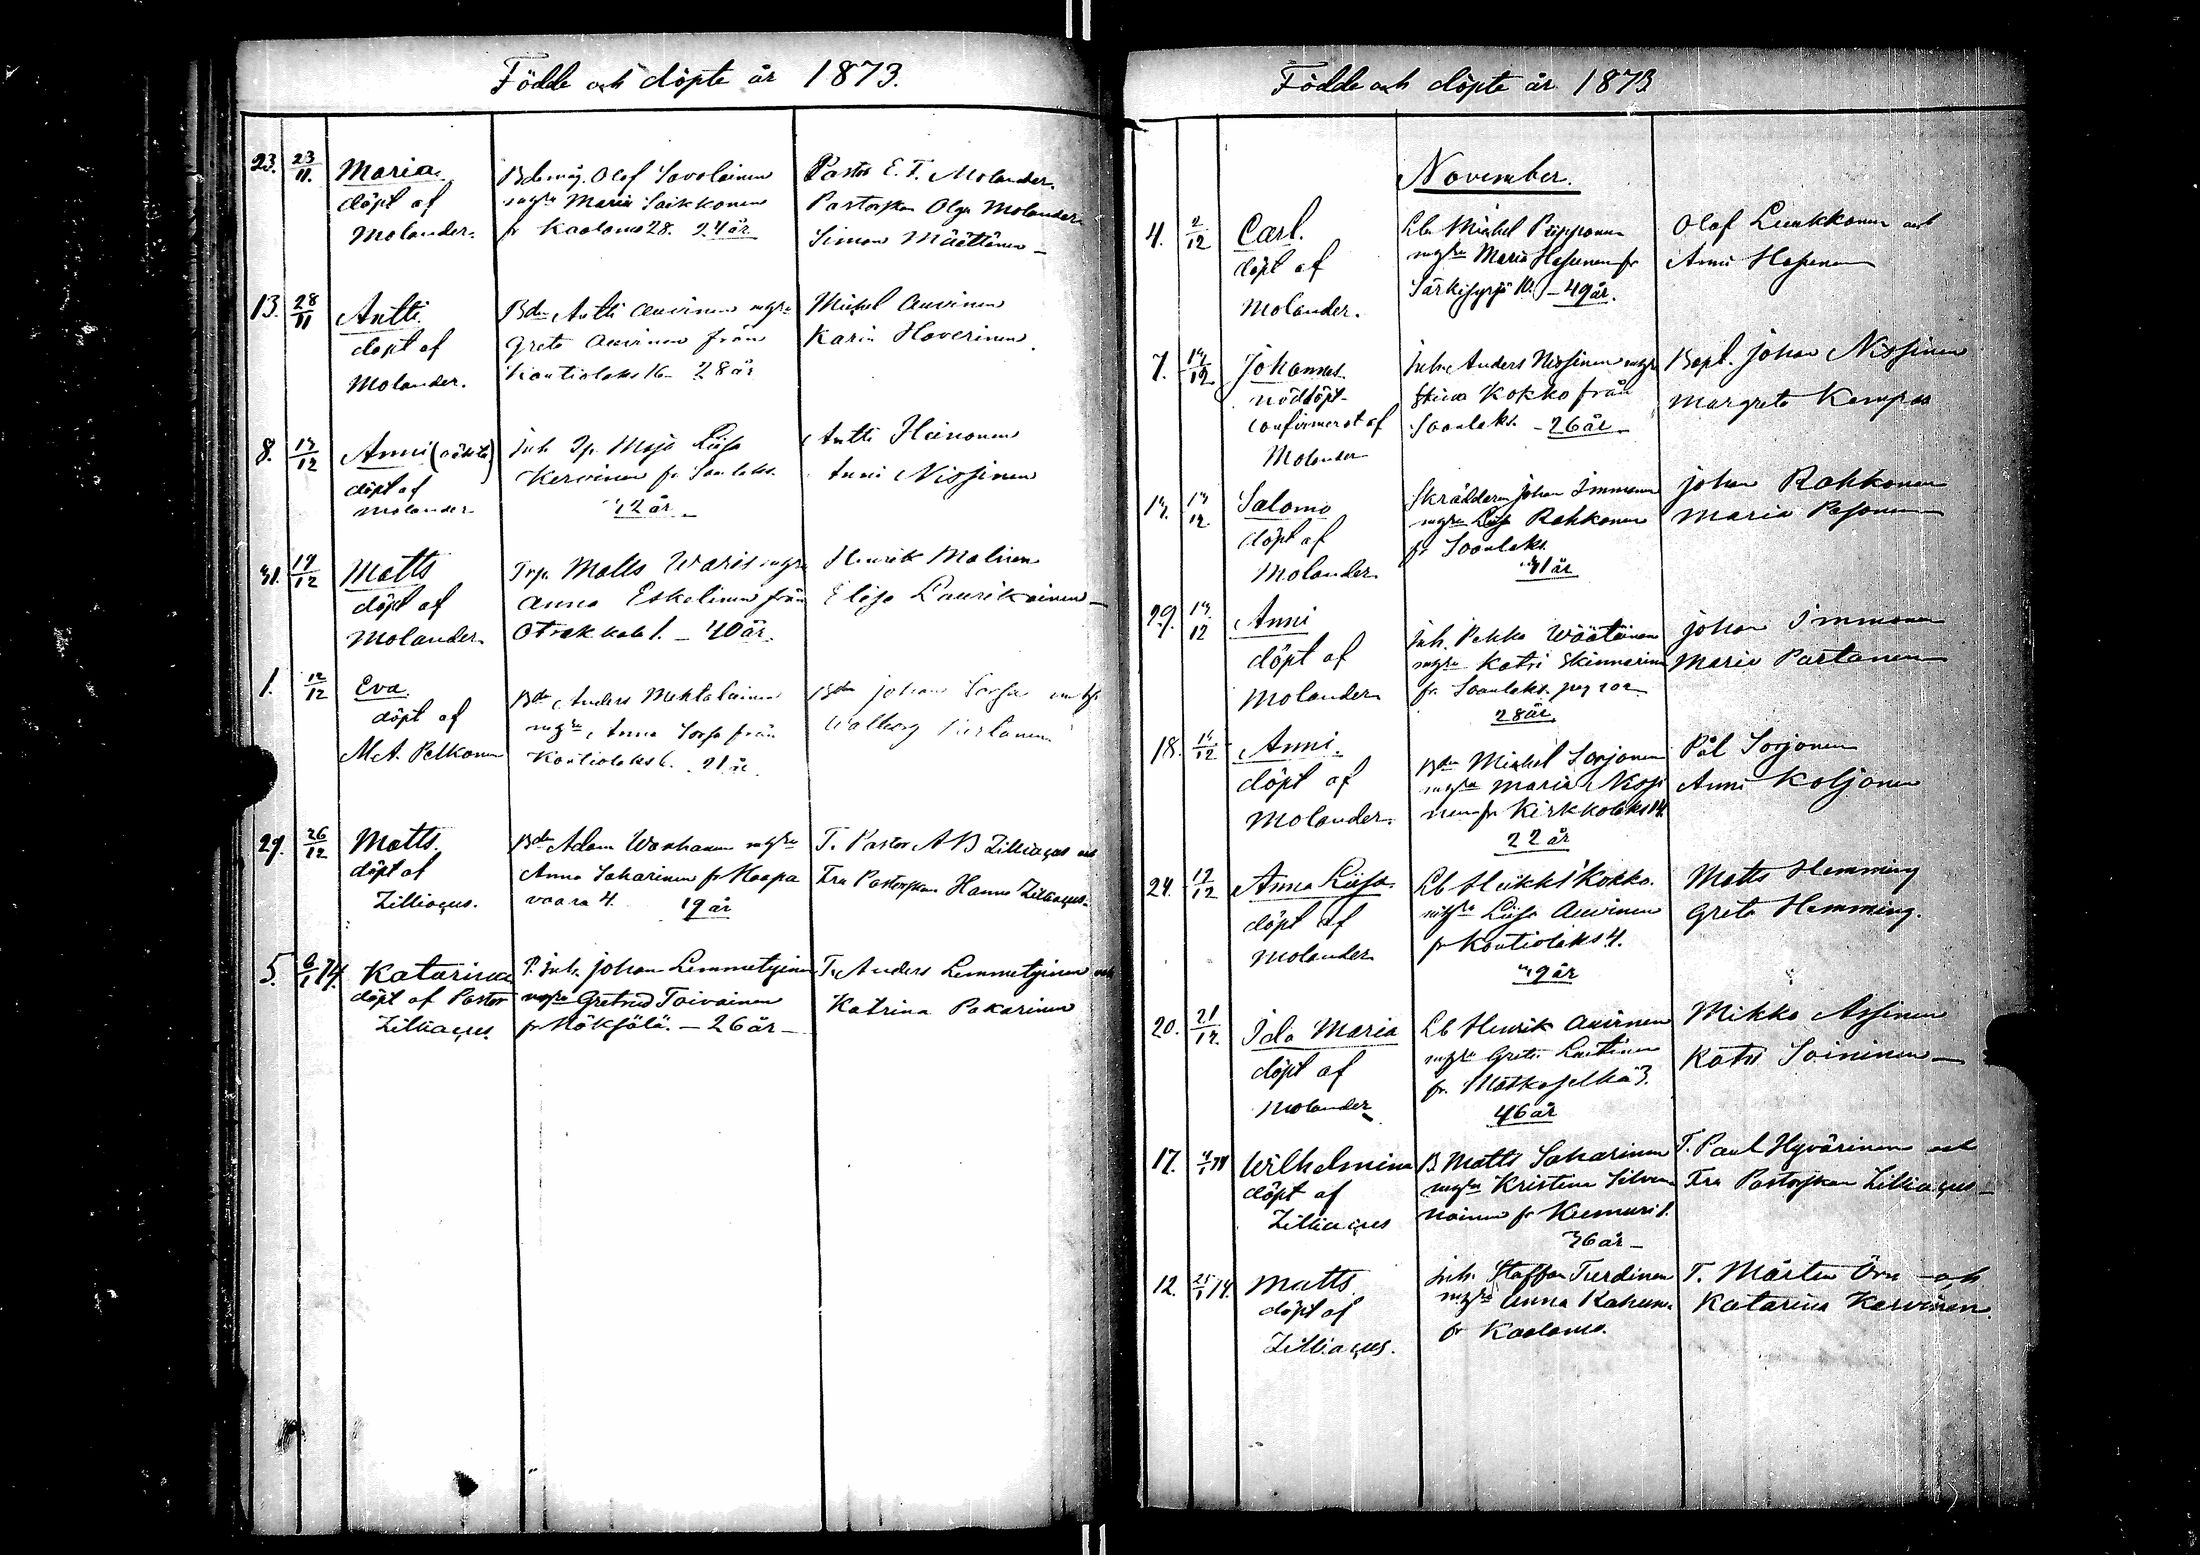 Födde och döpte år 1873.
23. 23/11. Maria. Bdemåg. Olof Savolainen Pastor E. T. Molander
döpt af mghr Maria Saikkonen Pastorskan Olga Molander
Molander. fr Kaalamo 28. 24 år Simon Määttänen –
13. 28/11 Antti Bdn Antti Auvinen mghr Michel Auvinen
döpt af Greta Auvinen från Karin Hoverinen.
Molander. Kontiolaks 16 28 år
8. 14/12 Anni (oäkta) Inh. Maja Liisa Antti Heinonen
döpt af Kervinen fr Soanlaks. Anni Nissinen
Molander 42 år –
31. 14/12 Matts Trp. Matts Waris mghr Henrik Malinen
döpt af Anna Eskelinen från Elisa Laurikainen –
Molander. Otrakkala 1. – 40 år.
1. 12/12 Eva Bdn Anders Mehtalainen Bdn Johan Sorsa
döpt af mghr Anna Sorsa från Walborg
M. A. Pelkonen Kontiolaks 6. 21 år
29. 26/12 Matts. Bdn Adam Wanhanen mghr T. Pastor A B Zilliacus och
döpt af Anna Saharinen fr Haapa Fru Pastorskan Hanna Zilliacus.
Zilliacus. vaara 4. 19 år
5. 6/1 74. Katarina P. inh. Johan Lemmetyinen T. Anders Lemmetyinen och
döpt af Pastor mghr Gertrud Toivainen Katrina Pakarinen
Zilliacus. fr Näksälä. – 26 år –
Födde och döpte år 1873
November.
4. 2/12 Carl. Lb. Michel Piipponen Olof Luukkonen och
döpt af mghr Maria Hassinen fr Anni Hassinen
Molander. Särkisyrjä 10. – 49 år.
7. 14/12 Johannes. Inh. Anders Nissinen mghr Bopl. Johan Nissinen
nöddöpt – Stina Kokko från Margreta Kemppa
confirmerat af Soanlaks. – 26 år –
Molander
14. 14/12 Salomo Skräddaren Johan Immonen Johan Rahkonen
döpt af mghr Liisa Rahkonen Maria Pasonen
Molander. fr Soanlaks.
41 år
29. 14/12 Anni Inh. Pekka Wäätäinen Johan Immonen
döpt af mghr Katri Skinnarinen Maria Partanen
Molander fr. Soanlaks. pag 202
28 år
18. 14/12 Anni. Bdn Michel Sorjonen Pål Sorjonen
döpt af mghr Maria Nissi Anni Koljonen
Molander. nen fr Kirkkolaks 14.
22 år
24. 17/12 Anna Liisa. Lb Heikki Kokko. Matts Hemming
döpt af mghr Liisa Auvinen Greta Hemming.
Molander fr Kontiolaks 4.
49 år
20. 21/12 Ida Maria Lb Henrik Auvinen Mikko Assinen
döpt af mghr Greta Laitinen Katri Soininen –
Molander fr. Matkaselkä 3.
46 år
17. 4/1 74 Wilhelmina B Matts Saharinen T. Paul Hyvärinen och
döpt af mghr Kristina Silven Fru Pastorskan Zilliacus –
Zilliacus noinen fr Kumuri 1.
36 år –
12. 25/1 74. Matts. Inh. Staffan Turdinen T. Mårten Orn och
döpt af mghr Anna Kahunen Katarina Karvinen.
Zilliacus. fr Kaalamo.